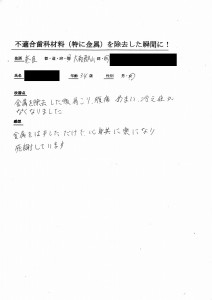 不適合歯科材料（特に金属）を除去した瞬間に！
住所 奈良 都・道・府・県 大和郡山 市・郡
氏名 年齢 34 歳 性別 男・女
改善点
金属を除去した後 肩こり、腰痛 めまい 冷え症が
なくなりました
感想
金属をはずしただけで 心身共に楽になり
感謝しています